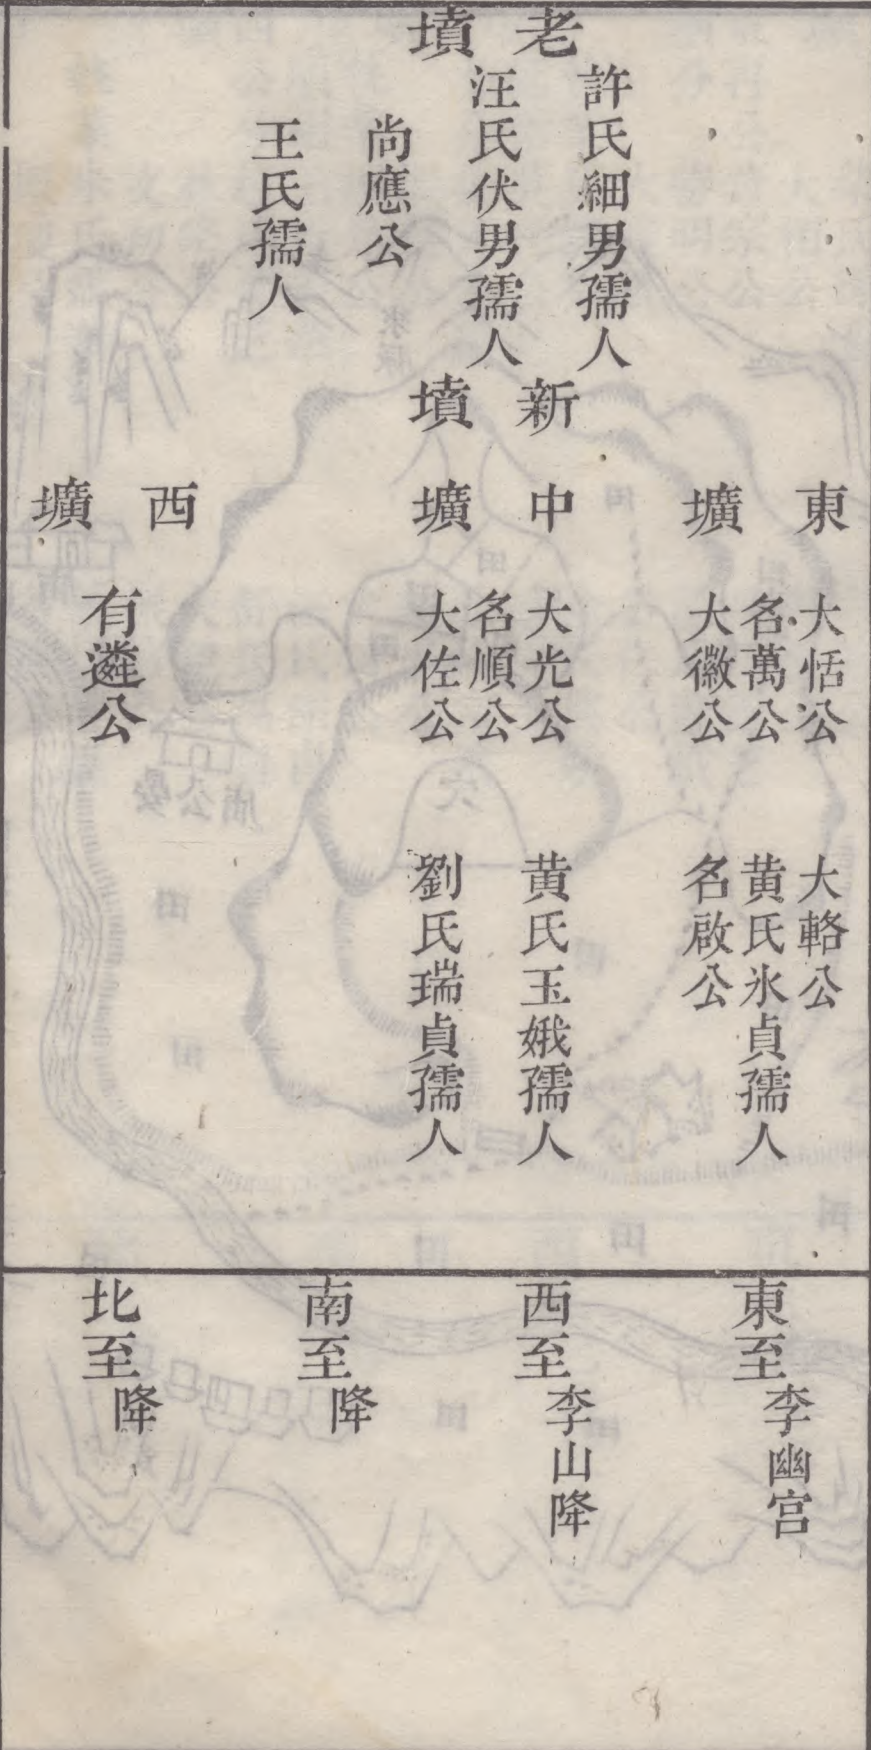 老墳
許氏細男孺人
汪氏伏男孺人
尚應公
王氏孺人
新墳
東壙
大恬公
名萬公
大徽公
大輅公
黄氏氷貞孺人
名啟公
中壙
大光公
名順公
大佐公
黄氏玉娥孺人
劉氏瑞貞孺人
西壙
有遴公
東至李幽宫
西至李山降
南至降
北至降